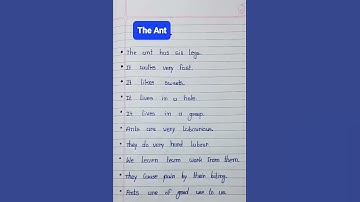 The Ant
• The ant has six legs.
• It walks very fast.
• It likes sweets.
• It lives in a hole.
• It lives in a group.
• Ants are very labourious.
• They do very hard labour.
• We learn team work from them.
• They cause pain by their biting.
• Ants are of great use to us.